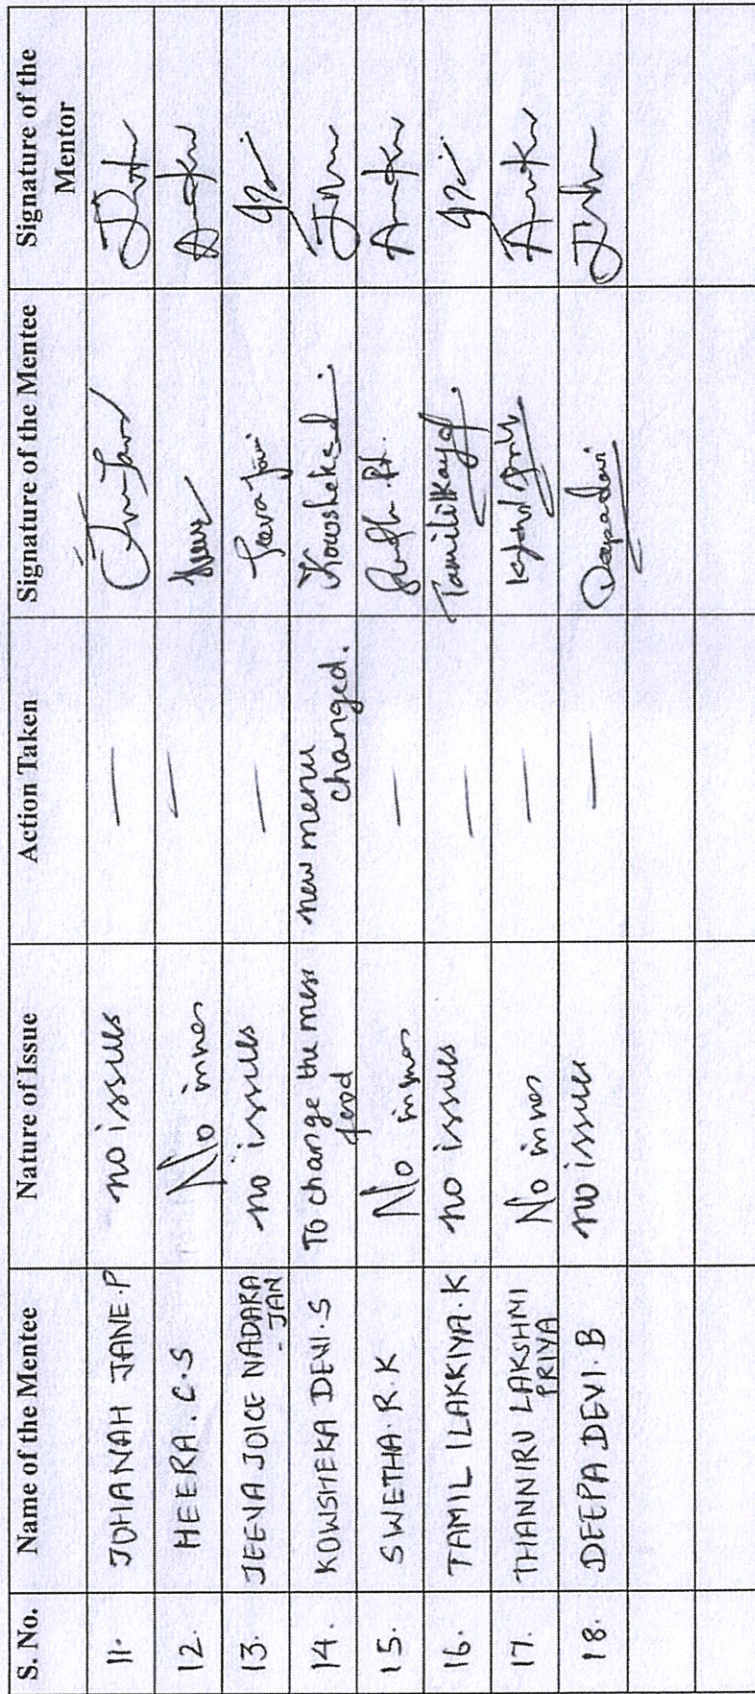 S. No. Name of the Mentee Nature of Issue Action Taken Signature of the Mentee Signature of the Mentor
11. JOHANAH JANE.P no issues —
12. HEERA.C.S No issues —
13. JEEVA JOICE NADARA - JAN no issues — Jeeva Joice
14. KOWSHEKA DEVI.S To change the mess food new menu changed. Kowsheka.d.
15. SWETHA.R.K No issues —
16. TAMIL ILAKKIYA.K no issues — Tamililakkiya
17. THANNIRU LAKSHMI PRIYA No issues —
18. DEEPA DEVI.B no issues — Deepadevi